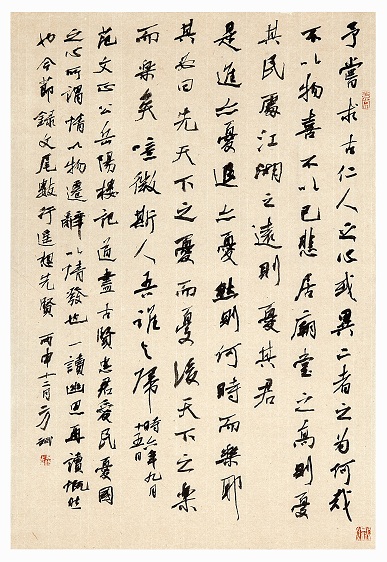 予嘗求古仁人之心或異二者之為何哉
不以物喜不以己悲居廟堂之高則憂
其民處江湖之遠則憂其君
是進亦憂退亦憂然則何時而樂耶
其必曰先天下之憂而憂後天下之樂
而樂矣噫微斯人吾誰与歸
時六年九月
十五日
范文正公岳陽樓記道盡古賢忠君愛民憂國
之心所謂情以物遷辭以情發也一讀幽思再讀慨然
也今節錄文尾數行遙想先賢丙申十二月方